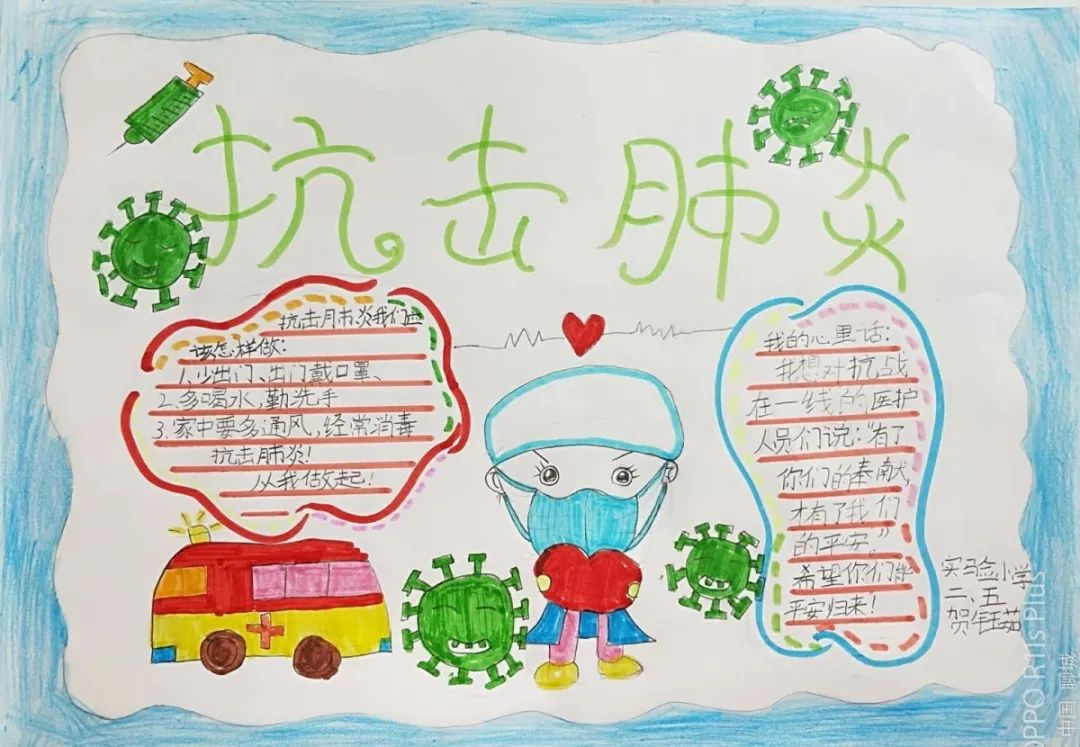 抗击肺炎
抗击肺炎我们应
该怎样做:
1.少出门、出门戴口罩、
2.多喝水,勤洗手
3.家中要多通风,经常消毒
抗击肺炎!
从我做起!
我的心里话:
我想对抗战
在一线的医护
人员们说:“有了
你们的奉献,
才有了我们
的平安。”
希望你们能
平安归来!
实验小学
二、五
贺钰茹
OPPO R11s Plus
中国 聊城